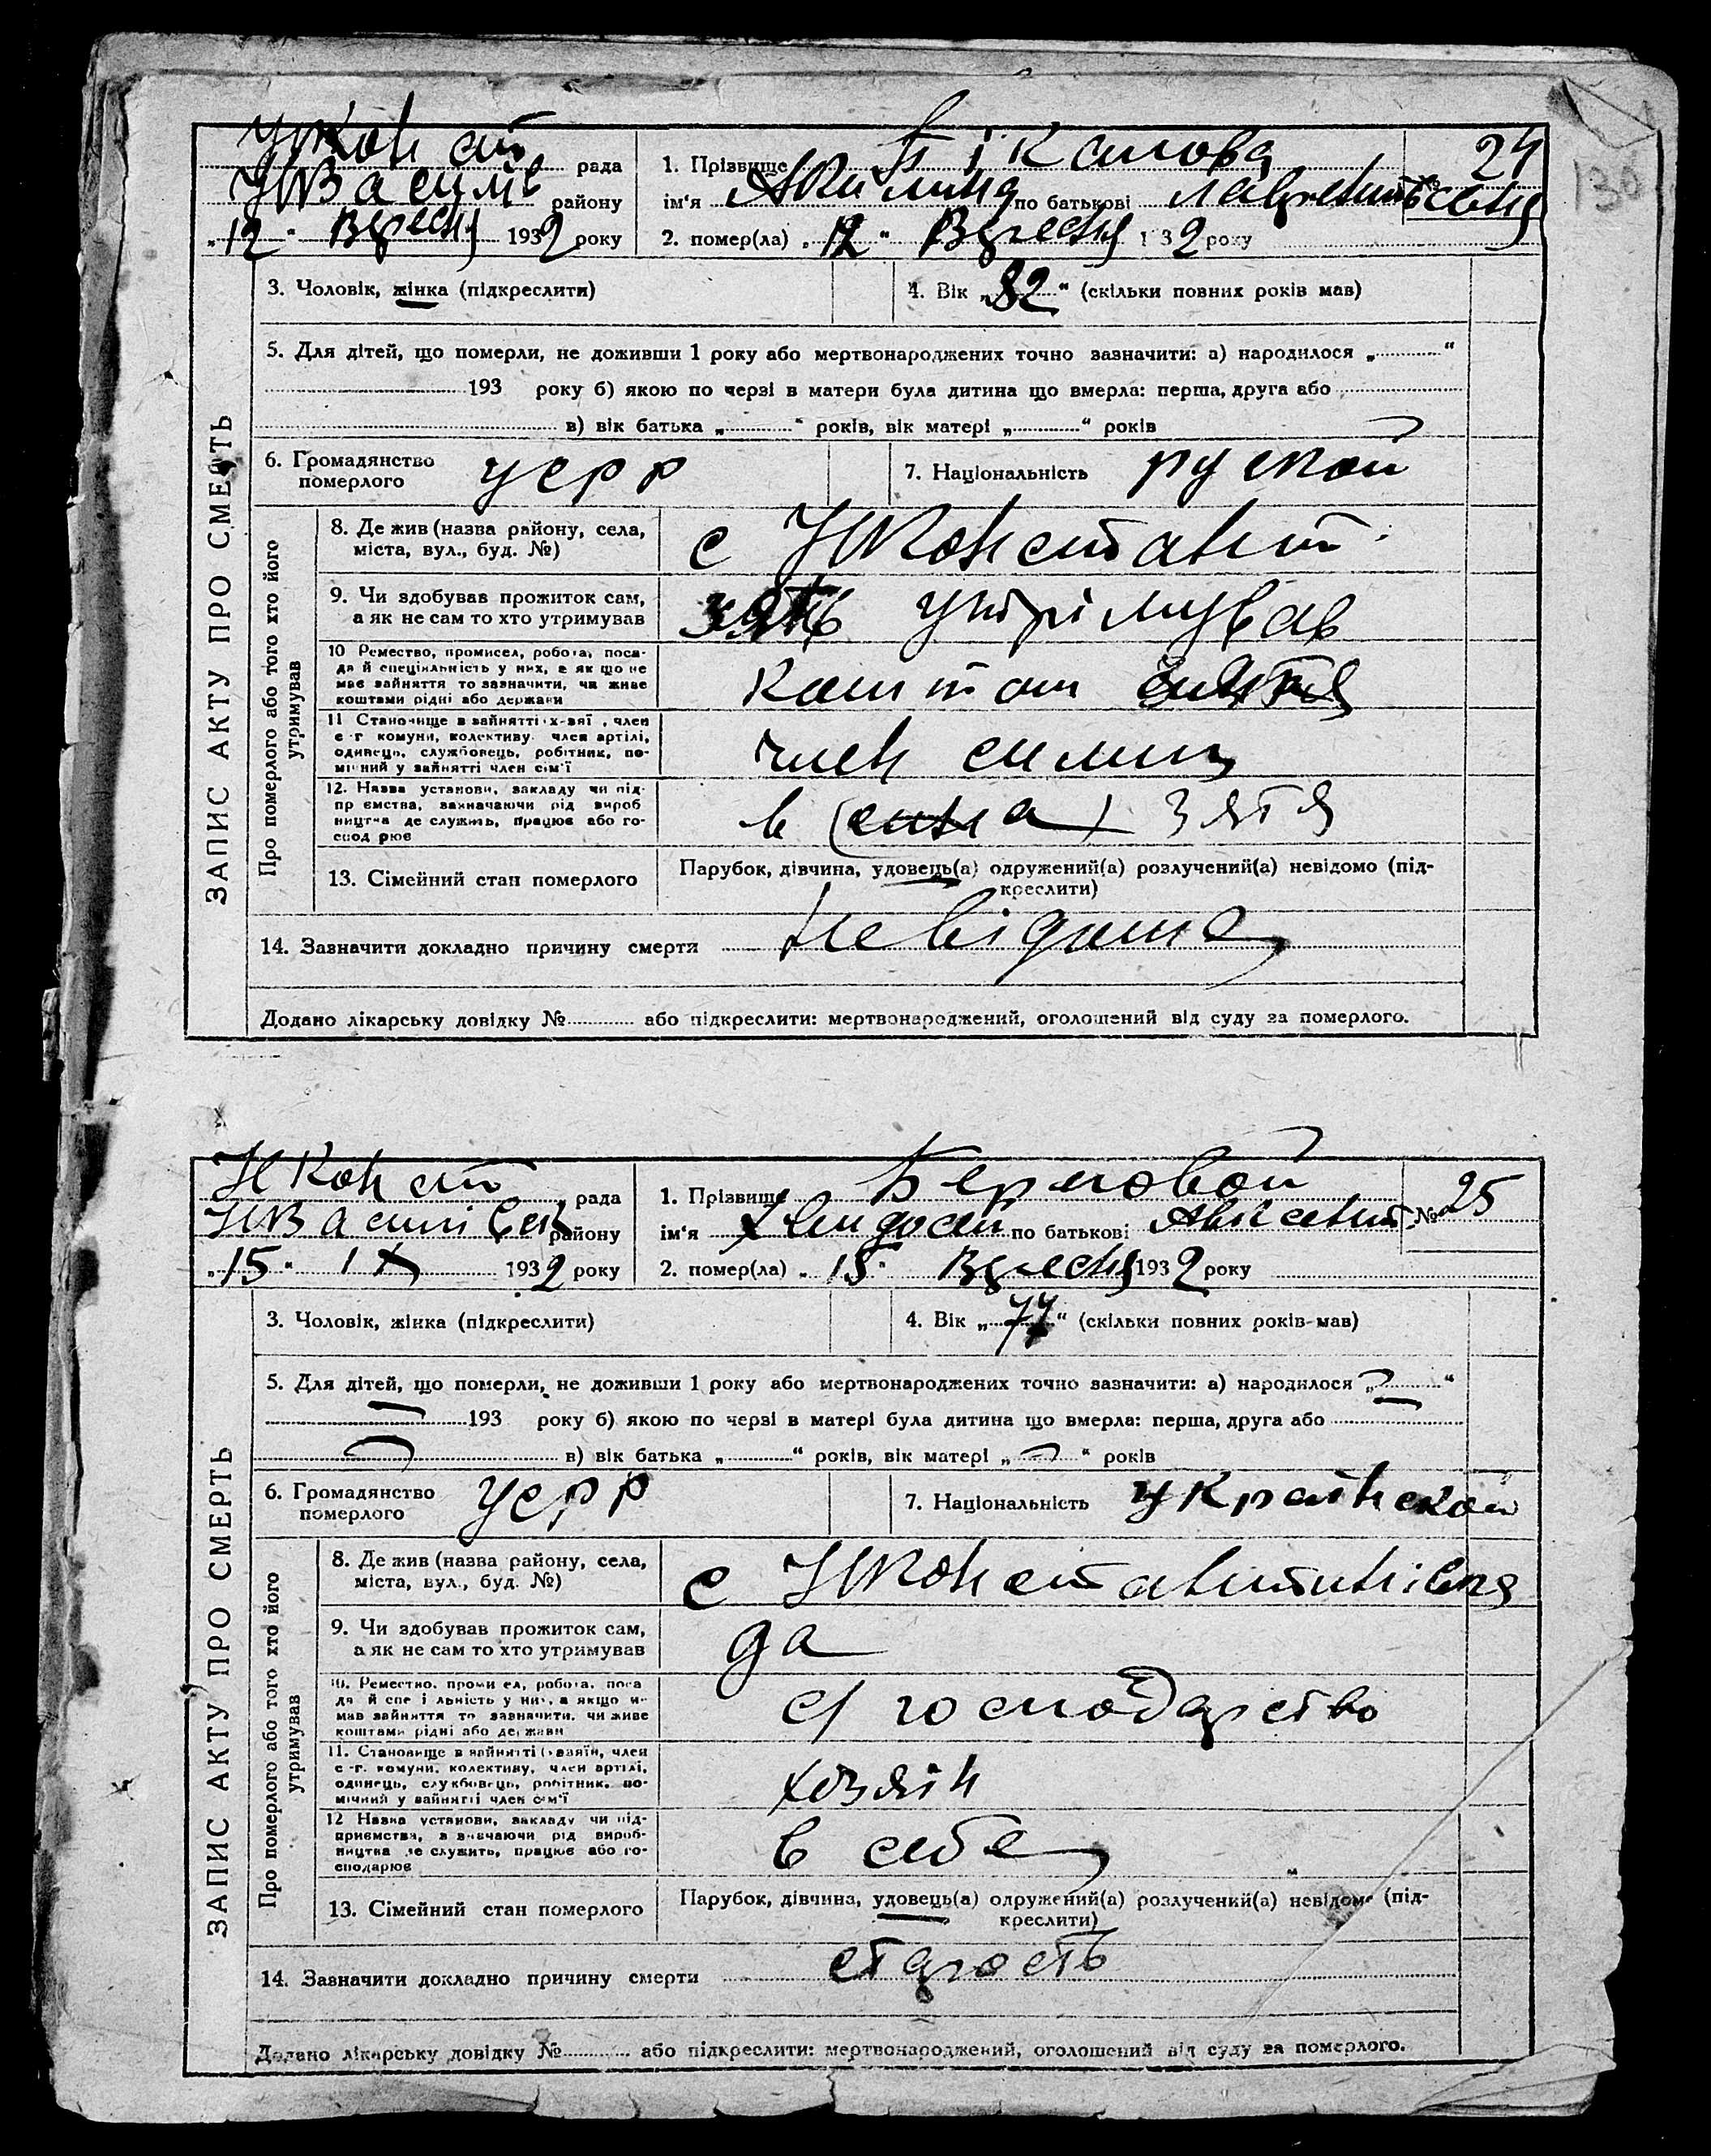 130
НКонст рада
НВасилів району
„12“ Вересня 1932 року
1. Прізвище Бікалова
24
ім'я Акилина по батькові Лаврентьевня
2. помер(ла) „12“ Вересня 1932 року
ЗАПИС АКТУ ПРО СМЕРТЬ
3. Чоловік, жінка (підкреслити)
4. Вік „82“ (скільки повних років мав)
5. Для дітей, що померли, не доживши 1 року або мертвонароджених точно зазначити: а) народилося „ “
193 року б) якою по черзі в матери була дитина що вмерла: перша, друга або
в) вік батька „ “ років, вік матері „ “ років
6. Громадянство померлого усрр
7. Національність руской
Про померлого або того хто його утримував
8. Де жив (назва району, села, міста, вул., буд. №)
с НКонстант.
9. Чи здобував прожиток сам, а як не сам то хто утримував
зять утрімував
10 Ремество, промисел, робота, посада й спеціяльність у них, а як що не має зайняття то зазначити, чи живе коштами рідні або держави
коштом зятя
11 Становище в зайнятті х-зяї , член с-г комуни, колективу член артілі, одинець, службовець, робітник, помічний у зайнятті член сім'ї
член симиї
12. Назва установи, закладу чи підпр ємства, зазначаючи рід виробництва де служить, працює або господ рює
в (сина) зятя
13. Сімейний стан померлого
Парубок, дівчина, удовець(а) одружений(а) розлучений(а) невідомо (підкреслити)
14. Зазначити докладно причину смерти невідома
Додано лікарську довідку № або підкреслити: мертвонароджений, оголошений від суду за померлого.
НКонст рада
НВасилівськ району
„15“ IX 1932 року
1. Прізвище Береговой
№ 25
ім'я по батькові
2. помер(ла) „15“ Вересня 1932 року
ЗАПИС АКТУ ПРО СМЕРТЬ
3. Чоловік, жінка (підкреслити)
4. Вік „77“ (скільки повних років мав)
5. Для дітей, що померли, не доживши 1 року або мертвонароджених точно зазначити: а) народилося „ “
193 року б) якою по черзі в матері була дитина що вмерла: перша, друга або
в) вік батька „ “ років, вік матері „ “ років
6. Громадянство померлого усрр
7. Національність украінской
Про померлого або того хто його утримував
8. Де жив (назва району, села, міста, вул., буд. №)
с НКонстантинівка
9. Чи здобував прожиток сам, а як не сам то хто утримував
да
10. Ремество, проми ел, робота, поса да й спе і льність у них, а якщо н мав зайняття то зазначити, чи живе коштами рідні або держави
с/ господарство
11. Становище в зайнятті (хазяїн, член с-г. комуни, колективу, член артілі, одинець, службовець, робітник, помічний у зайнятті член сім'ї
хозяін
12 Назва установи, закладу чи підприємства, зазначаючи рід виробництва де служить, працює або господарює
в себе
13. Сімейний стан померлого
Парубок, дівчина, удовець(а) одружений(а) розлучений(а) невідомо (підкреслити)
14. Зазначити докладно причину смерти старость
Додано лікарську довідку № або підкреслити: мертвонароджений, оголошений від суду за померлого.